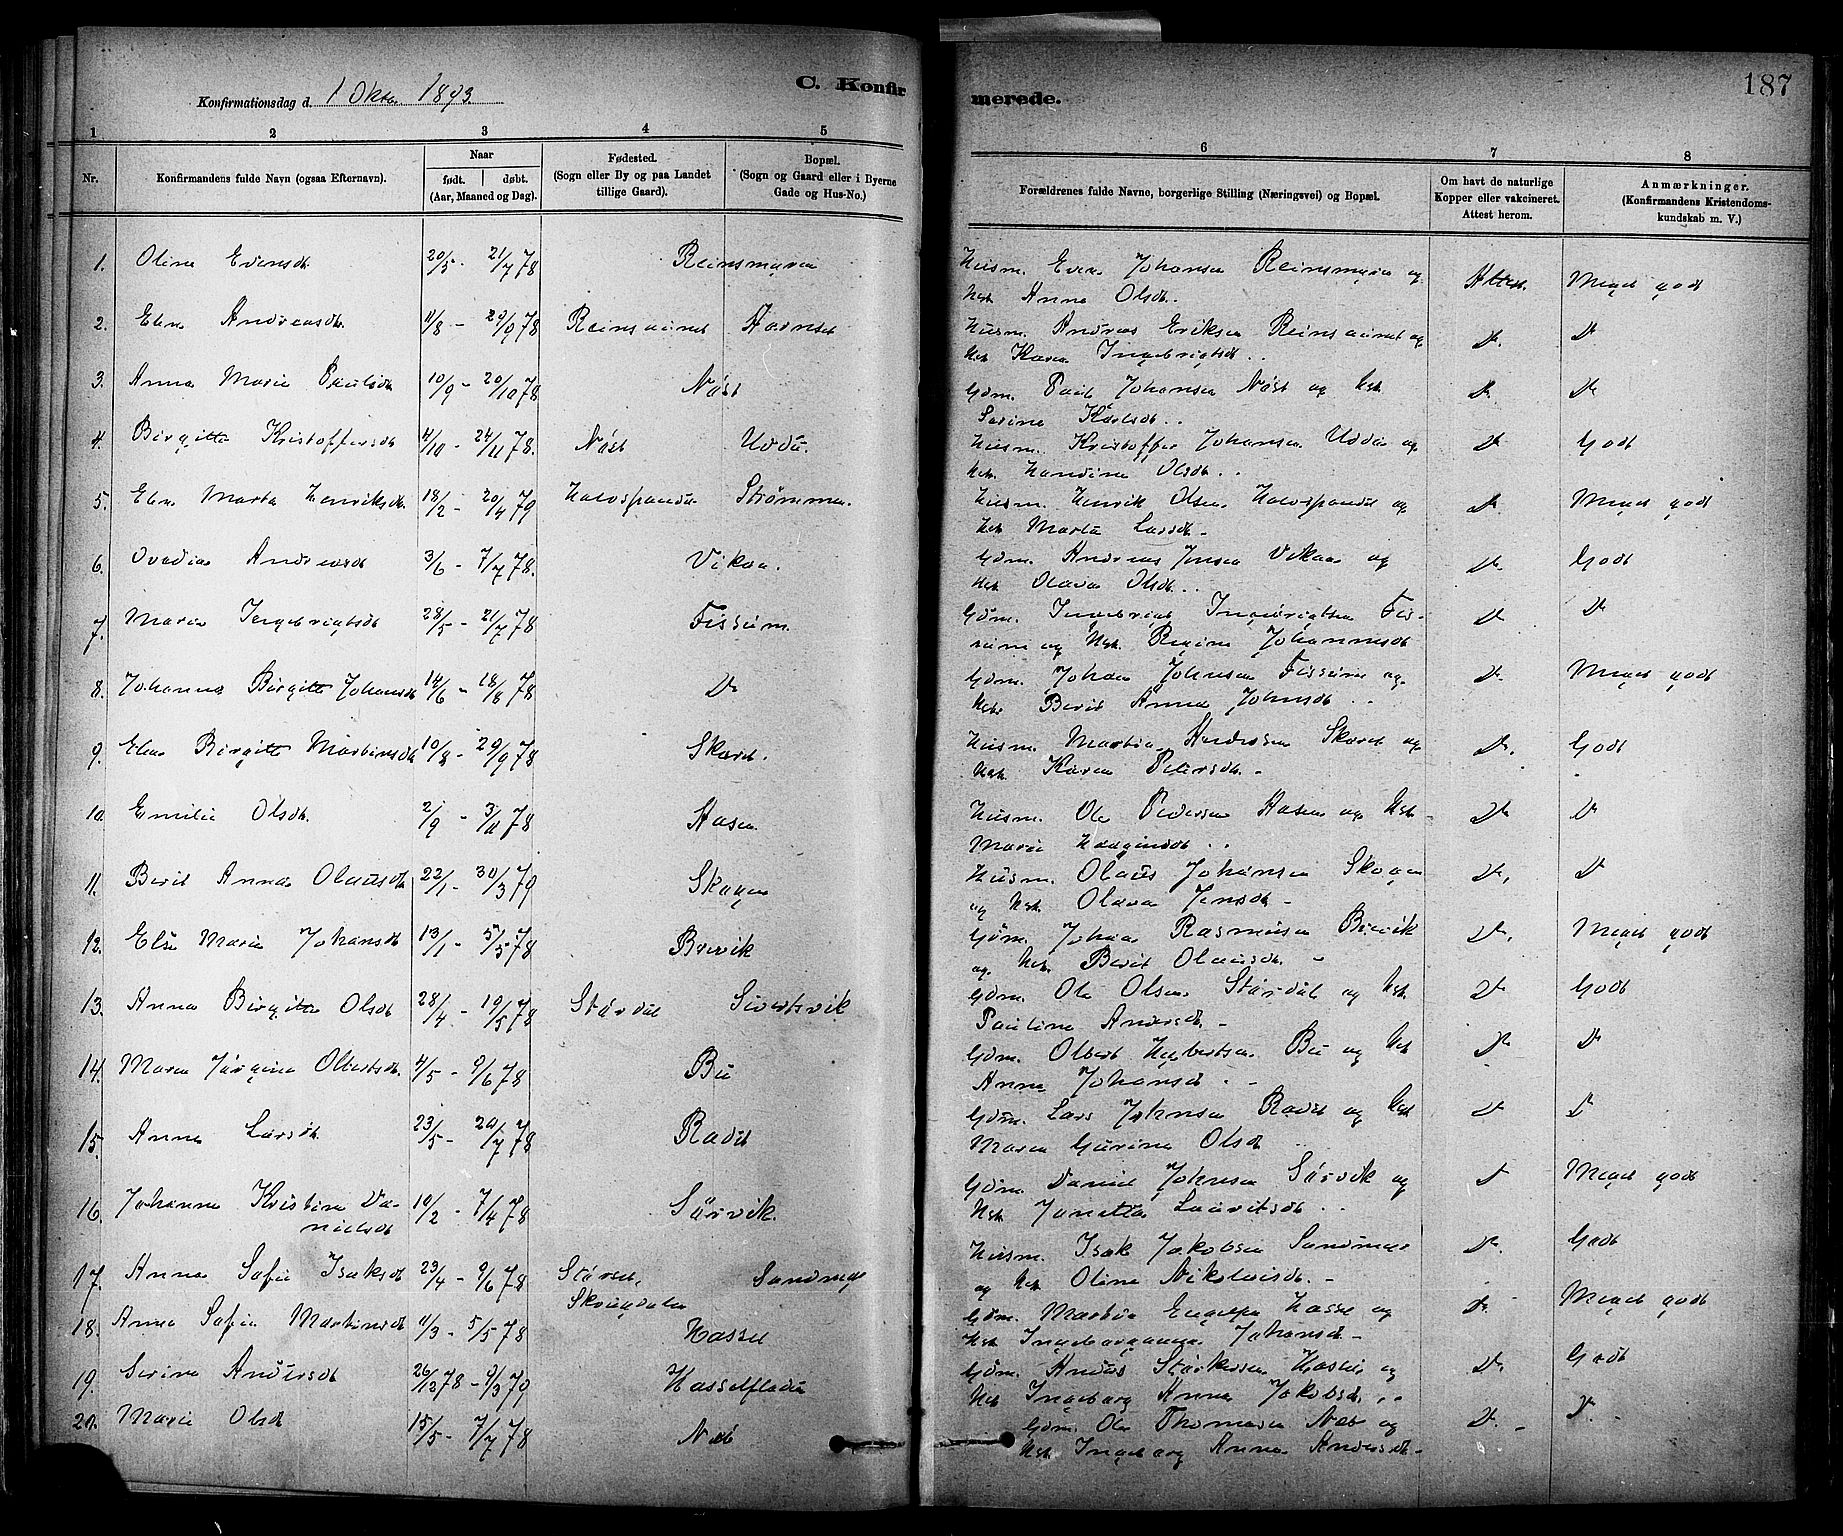 C. Konfir
merede.
187
Konfirmationsdag d. 1 Oktr. 1893
1 2 3 4 5 6 7 8
Nr.
Konfirmandens fulde Navn (ogsaa Efternavn).
Naar
født. døbt.
(Aar, Maaned og Dag).
Fødested.
(Sogn eller By og paa Landet
tillige Gaard).
Bopæl.
(Sogn og Gaard eller i Byerne
Gade og Hus-No.)
Forældrenes fulde Navne, borgerlige Stilling (Næringsvei) og Bopæl.
Om havt de naturlige
Kopper eller vakcineret.
Attest herom.
Anmærkninger.
(Konfirmandens Kristendoms-
kundskab m. V.)
1. Oline Evensdt. 20/5 - 21/7 78 Reinsmyren Husm. Even Johansen Reinsmyren og Attest. Meget godt
Hst. Anne Olsdt.
2. Elen Andreasdt. 11/8 - 29/9 78 Reinsaunet Husm. Andreas Eriksen Reinsaunet og Do. Do
Hst. Karen Ingebrigtsdt.
3. Anna Marie Paulsdt 10/9 - 20/10 78 Nøst Gdm. Paul Johansen Nøst og Hst. Do. Do
Serine Karlsdt.
4. Birgitte Kristoffersdt 4/10 - 24/11 78. Nøst Uddu. Husm. Kristoffer Johansen Uddu og Do Godt
Hst. Olsdt.
5. Elen Marta Henriksdt. 18/2 - 20/4 79 Strømmen. Husm. Henrik Olsen og Do. Meget godt
Hst. Marta Larsdt.
6. Ovedia Andreasdt 3/6 - 7/7 78. Vikan. Gdm. Andreas Jensen Vikan og Do. Godt
Hst. Olava Olsdt.
7. Maria Ingebrigtsdt 28/5 - 21/7 78 Fissum. Gdm. Ingebrigt Ingebrigtsen Fis- Do Do
sum og Hst. Regine Johannesdt
8. Johanna Birgitte Johansdt 14/6 - 18/8 78 Do Gdm. Johan Johnsen Fissum og Do. Meget godt
Hst. Berit Anna Johnsdt
9. Elen Birgitte Martinsdt 10/8 - 29/9 78 Skaret. Husm. Martin Andersen Skaret og Do. Godt
Hst. Karen Petersdt.
10. Emilie Olsdt. 2/9 - 3/11 78 Aasen Husm. Ole Pedersen Aasen og Hst. Do Do
Marie Haagensdt
11. Berit Anna Olausdt 22/1 - 30/3 79 Skogen Husm. Olaus Johansen Skogen Do, Do
og Hst. Olava Jensdt
12. Else Marie Johansdt 13/1 - 5/5 78 Brevik Gdm. Johan Rasmusen Brevik Do. Meget godt
og Hst. Berit Olausdt.
13. Anna Birgitte Olsdt 28/4 - 19/5 78 Størdal Sivertsvik Gdm. Ole Olsen Størdal og Hst. Do Godt
Pauline Andersdt.
14. Maren Jørgine Olbertsdt. 4/5 - 9/6 78 Bu Gdm. Olbert Bu og Hst Do Do
Anne Johansdt.
15. Anna Larsdt. 23/5 - 20/7 78 Rødet Gdm. Lars Johnsen Rødet og Hst Do Do
Maren Gurine Olsdt
16. Johanna Kristine Da- 10/2 - 7/4 78 Sørvik. Gdm. Daniel Johnsen Sørvik og Do Meget godt
nielsdt Hst. Janetta Lauritsdt.
17. Anna Sofie Isaksdt 23/4 - 9/6 78 Sandmo Husm. Isak Jakobsen Sandmo Do. Godt
og Hst. Oline Nikolaisdt.
18. Anna Sofie Martinsdt 11/3 - 5/5 78 Hassel Gdm. Martin Hassel og Do. Meget godt
Hst. Johansdt
19. Serine Andersdt 26/12 78 - 9/3 79 Hasselflade Gdm. Anders og Do. Godt
Hst Ingeborg Anna Jakobsdt.
20. Marie Olsdt 15/5 - 7/7 78 Næs Gdm. Ole Thomesen Næs og Do. Do.
Hst. Ingeborg Anna Andersdt